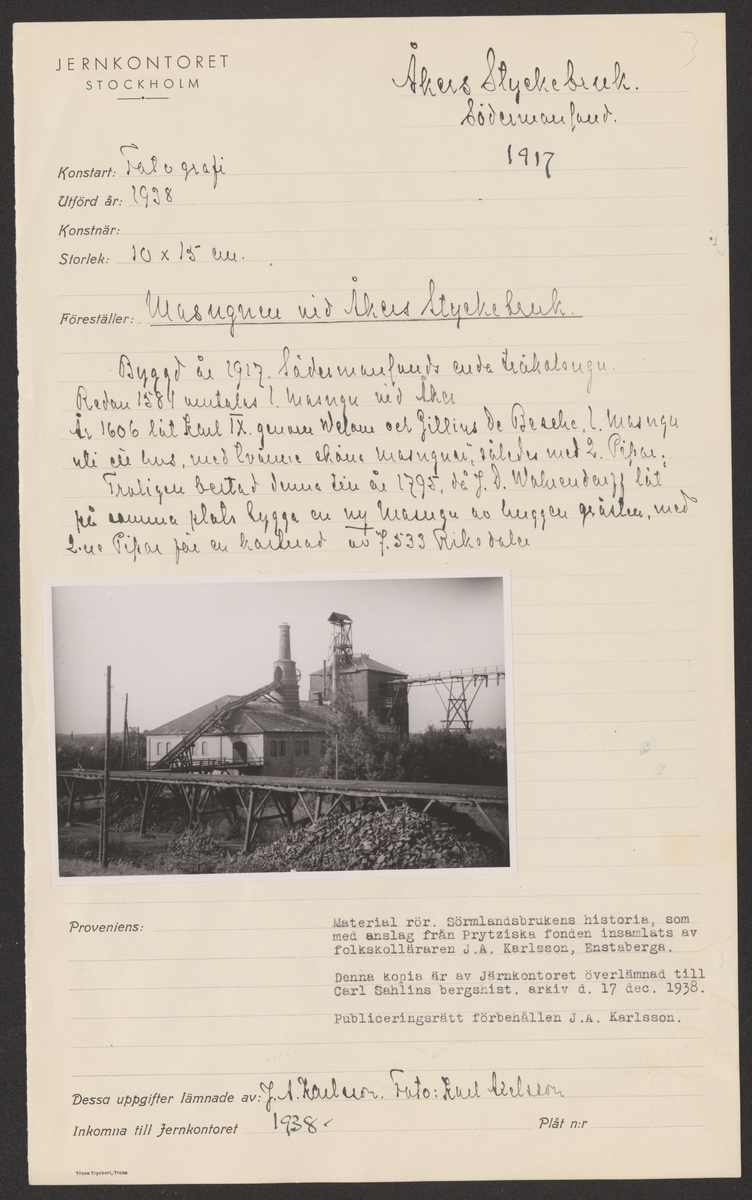 JERNKONTORET
STOCKHOLM
Åkers Styckebruk.
Södermanland.
1917
Konstart: Fotografi
Utförd år: 1938
Konstnär:
Storlek: 10 x 15 cm.
Föreställer: Masugnen vid Åkers Styckebruk.
Byggd år 1917. Södermanlands enda träkolsugn.
Redan 1584 omtales 1. Masugn vid Åker
År 1606 lät Karl IX. genom Welam och Gillius De Besche, 1. Masugn
uti ett hus, med tvänne sköna masugnar, således med 2. Pipor.
Troligen bestod denna till år 1795, då J. D. Wahrendorff lät
på samma plats bygga en ny Masugn av huggen gråsten, med
2-ne Pipor för en kostnad av 7.533 Riksdaler
Proveniens:
Material rör. Sörmlandsbrukens historia, som
med anslag från Prytziska fonden insamlats av
folkskolläraren J.A. Karlsson, Enstaberga.
Denna kopia är av Järnkontoret överlämnad till
Carl Sahlins bergshist. arkiv d. 17 dec. 1938.
Publiceringsrätt förbehållen J.A. Karlsson.
Dessa uppgifter lämnade av: J. A. Karlsson. Foto: Karl Axelsson
Inkomna till Jernkontoret 1938. Plåt n:r
Trosa Tryckeri, Trosa